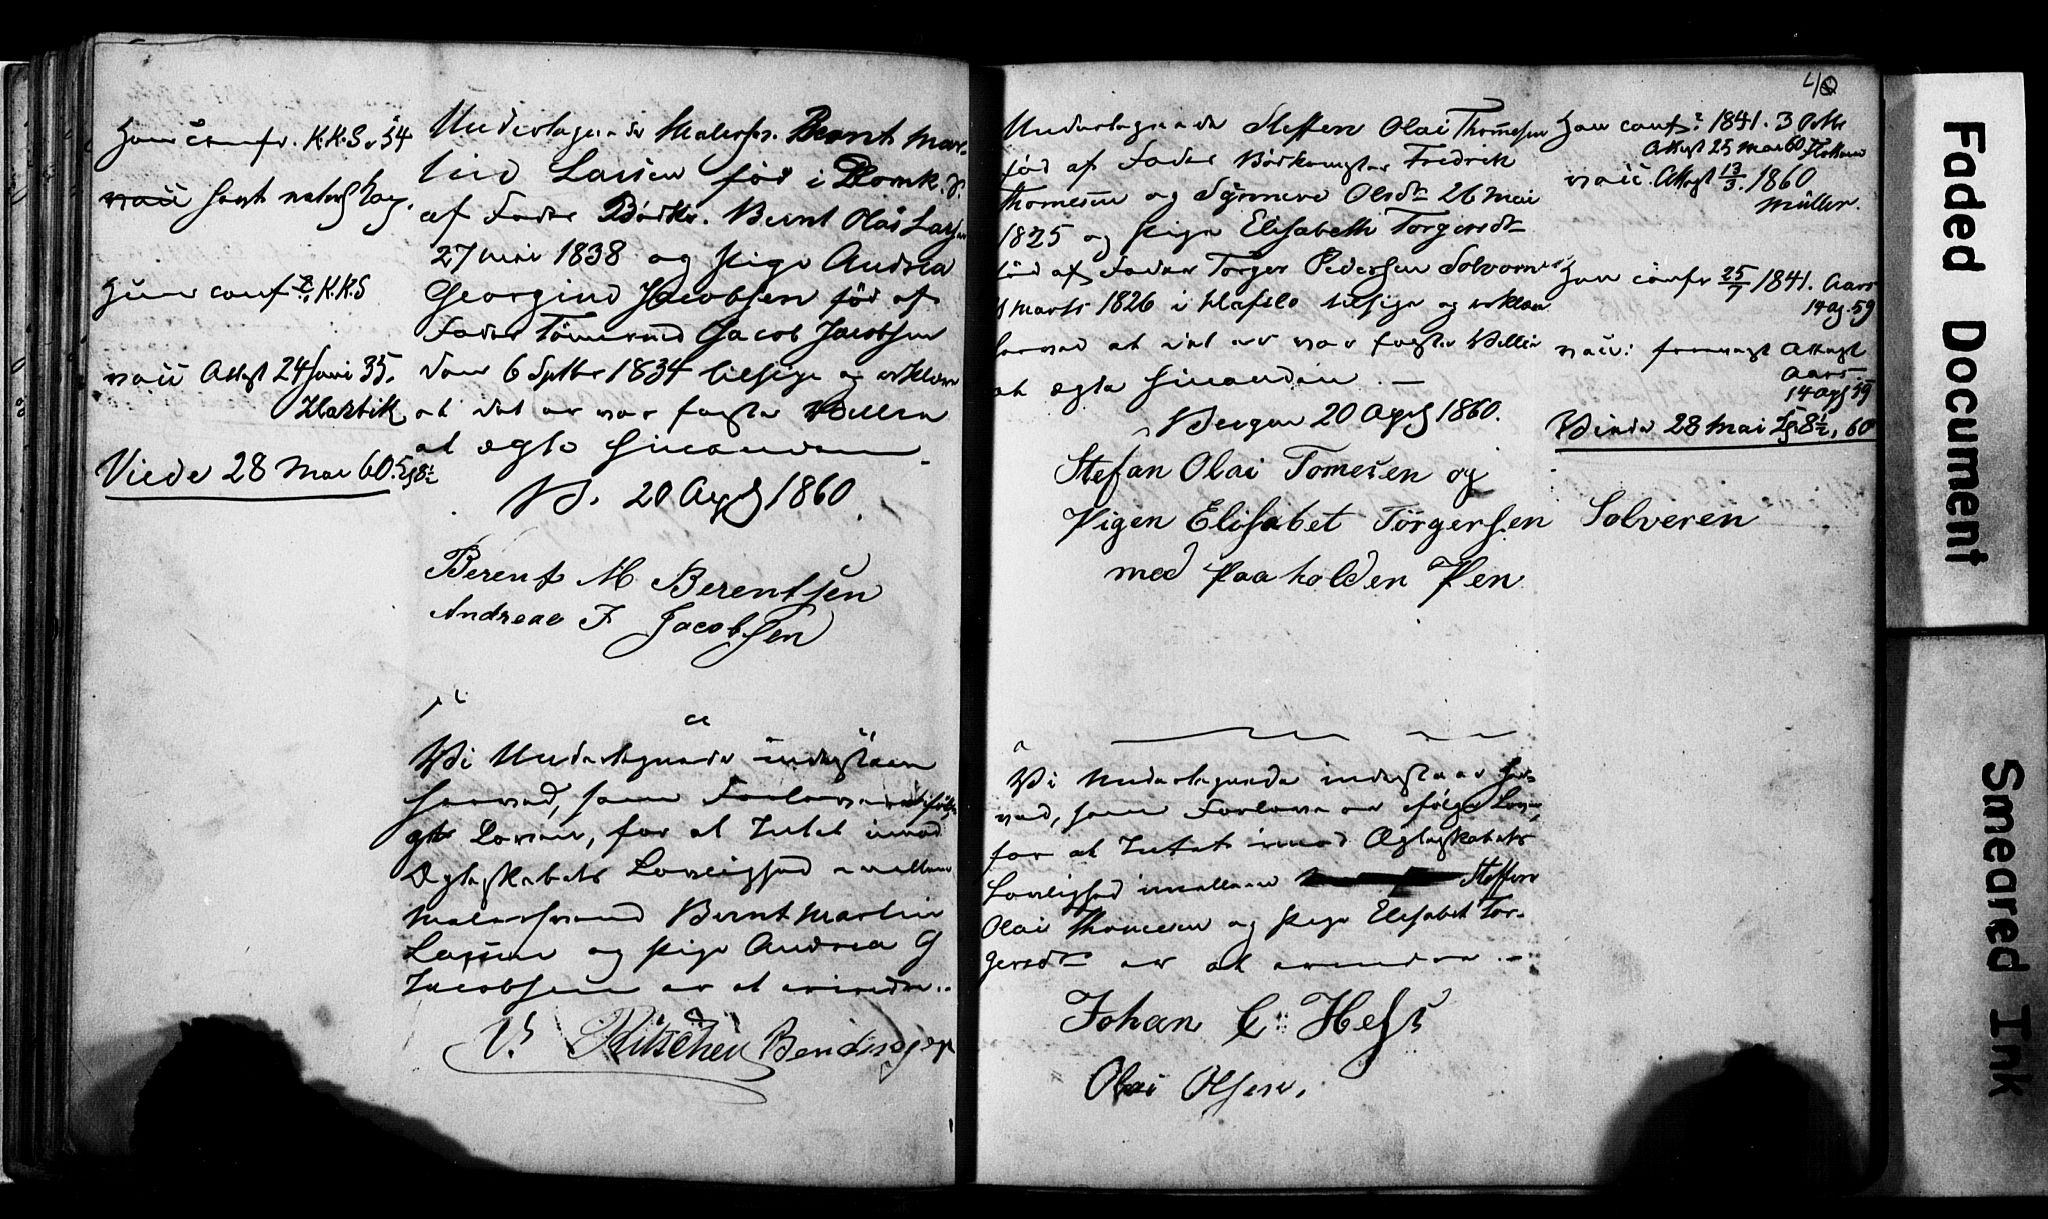 Han confr. K.K.S. 54
vacc
Hun conf K.K.S
vacc Attest 24 Juni 35.
Viede 28 Mai 60.
Undertegnede Malersv. Bernt Mar-
tin Lassen fød i Domk.
af Fader Bødkr. Bernt Olai
27 Mai 1838 og Pige Andrea
Georgine Jacobsen fød af
Fader Tømmermd Jacob Jacobsen
den 6 Septbr 1834 tilsige og erklære
at det er vor faste Villie
at ægte hinanden.
B. 20 April 1860.
Berent M Berentsen
Andreae J Jacobsen
Vi Undertegnede indestaaer
herved, som Forlovere
Loven, for at Intet imod
Ægteskabets Lovlighed mellem
Malersvend Bernt Martin
Lassen og Pige Andrea G
Jacobsen er at erindre.
Ritschen Bendix
40
Undertegnede Steffen Olai Thomesen
fød af Fader Bødkermester Fredrik
Thomesen og Olsdtr 26 Mai
1825 og Pige Elisabeth Torgersdtr
fød af Fader Torger Pedersen Solvorn
Marts 1826 i Hafslo tilsige og erklære
herved at det er vor faste Villie
at ægte hinanden.
Bergen 20 April 1860.
Stefan Olai Tomesen og
Pigen Elisabet Törgersen Solveren
med Paaholden Pen
Vi Undertegnede indestaaer her-
ved, som Forlovere ifølge Loven,
for at Intet imod Ægteskabets
Lovlighed imellem Steffen
Olai Thomesen og Pige Elisabet Tor-
gersdtr er at erindre.
Johan C. Hess
Olai Olsen.
Han conf. 1841. 3 Octbr
Attest 25 Mai 60
vacc. Attest 13/3. 1860
Müller.
Hun confr 25/7 1841. Aars
14 Ap. 59
vacc. Attest
Aars
14 Apl 59
Viede 28 Mai 60
Faded Document
Smeared Ink